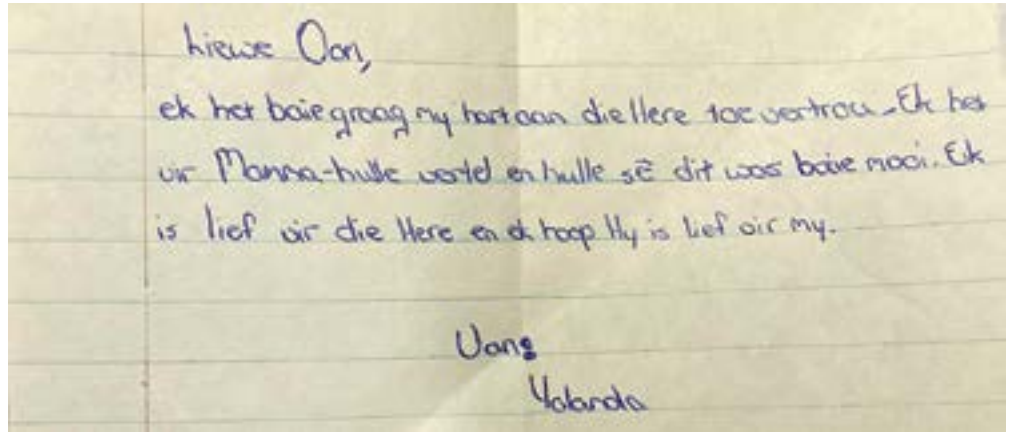 Liewe Oom,
ek het baie graag my hart aan die Here toe vertrou. Ek het
vir Mamma-hulle vertel en hulle sê dit was baie mooi. Ek
is lief vir die Here en ek hoop Hy is lief vir my.
Van:
Yolanda